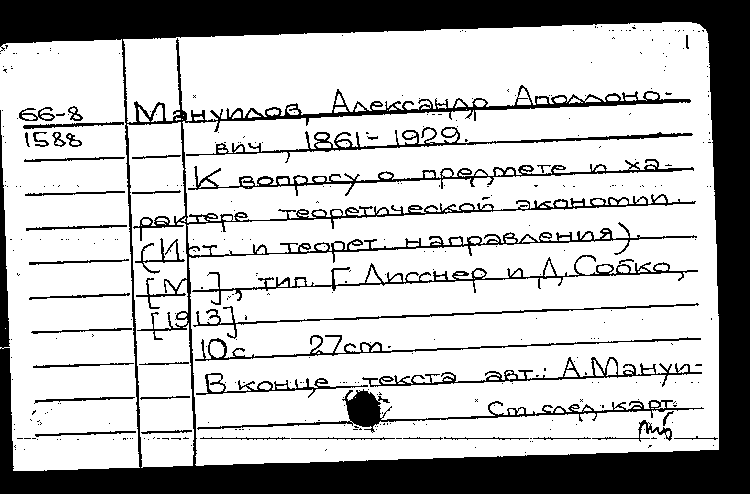 1
66-8 Мануилов, Александр Аполлоно-
1588 вич, 1861-1929.
К вопросу о предмете и ха-
рактере теоретической экономии.
(Ист. и теорет. направления).
[М.], тип. Г. Лисснер и Д. Собко,
[1913].
10с. 27см.
В конце текста авт.: А.Мануи-
См.след.карт.